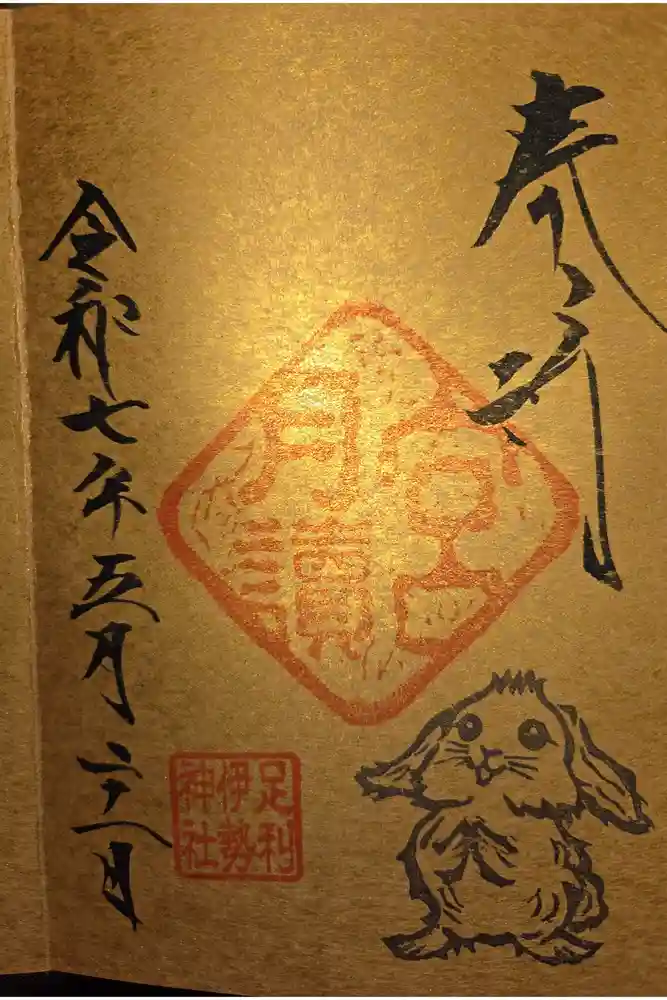 奉拝
月讀
宮
令和七年五月二十一日
足利
伊勢
神社